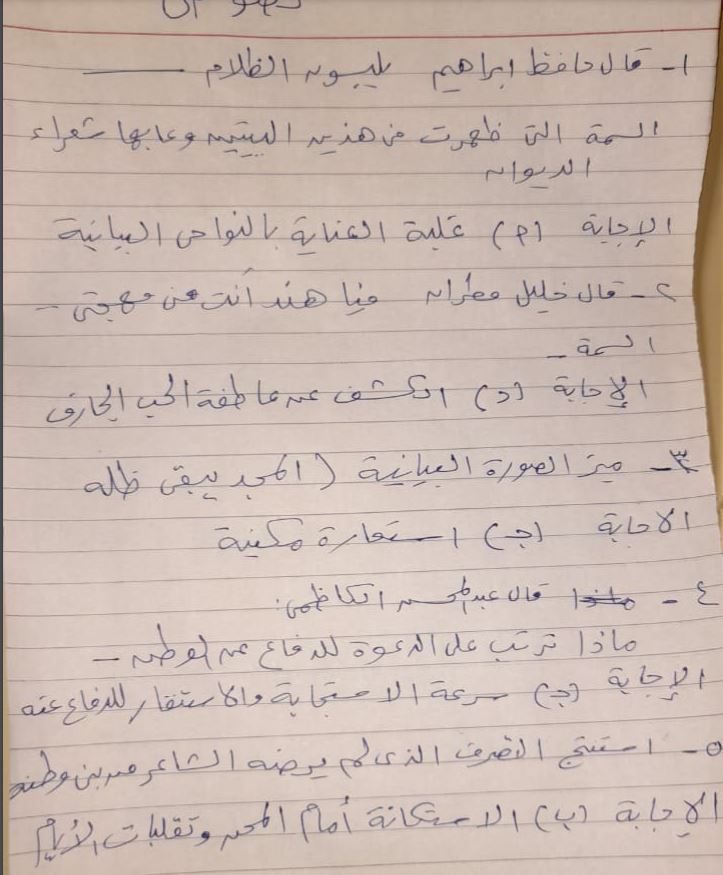 ١- قال حافظ ابراهيم يلبسون الظلام
السمة التى ظهرت من هذين البيتين وعابها شعراء
الديوان
الإجابة (م) غلبة العناية بالنواحى البيانية
٢- قال خليل مطران فيا هند أنت من مهجتى -
السمة -
الإجابة (د) الكشف عن عاطفة الحب الجارف
٣- ميز الصورة البيانية (المجد يبقى ظله
الاجابة (جـ) استعارة مكنية
٤- ماذا قال عبد المحسن الكاظمى:
ماذا ترتب على الدعوة للدفاع عن الوطن -
الإجابة (جـ) سرعة الاستجابة والاستقار للدفاع عنه
٥- استنتج التصرف الذى لم يرضه الشاعر من بنى وطنه
الإجابة (ب) الاستكانة أمام المحن وتقلبات الأيام